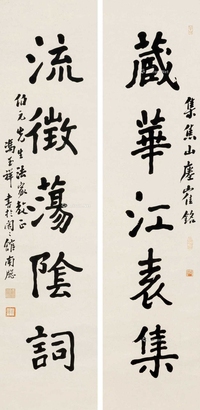 集焦山廔崔銘
藏華江表集
流徵蕩陰詞
伯元先生法家教正
馮玉祥書於